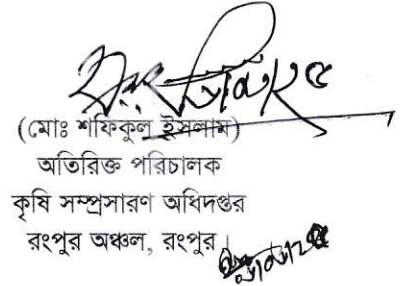 (মোঃ শফিকুল ইসলাম)
অতিরিক্ত পরিচালক
কৃষি সম্প্রসারণ অধিদপ্তর
রংপুর অঞ্চল, রংপুর।